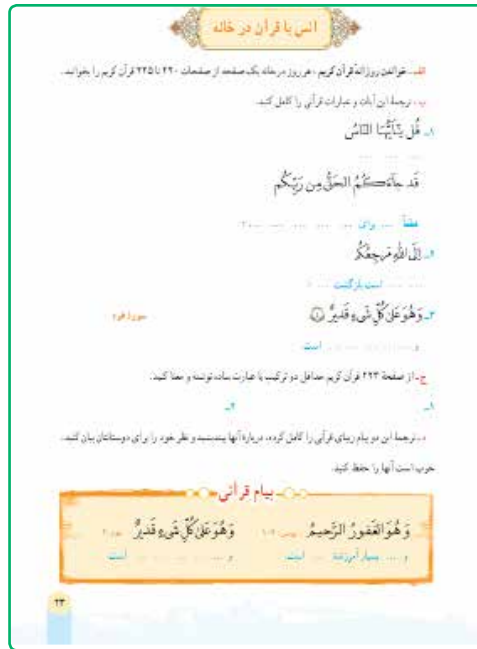 انس با قرآن در خانه
الف ـ خواندن روزانهٔ قرآن کریم ، هر روز در خانه یک صفحه از صفحات ۲۲۰ تا ۲۲۵ قرآن کریم را بخوانید.
ب ـ ترجمهٔ این آیات و عبارات قرآنی را کامل کنید.
۱ـ قُل يٰٓأَيُّهَا النّاسُ
... ... ...
قَد جاءَكُمُ الحَقُّ مِن رَبِّكُم
قطعاً ... برای ... ... ... ... ... .
۲ـ إِلَى اللهِ مَرجِعُكُم
... ... است بازگشت ...
۳ـ وَ هُوَ عَلىٰ كُلِّ شَيءٍ قَديرٌ ۴ سورهٔ هود
و ... ... ... ... ... است.
ج ـ از صفحهٔ ۲۲۳ قرآن کریم حداقل دو ترکیب یا عبارت ساده نوشته و معنا کنید.
۱ـ ۲ـ
د ـ ترجمهٔ این دو پیام زیبای قرآنی را کامل کرده، دربارهٔ آنها بیندیشید و نظر خود را برای دوستانتان بیان کنید.
خوب است آنها را حفظ کنید.
پیام قرآنی
وَ هُوَ الغَفورُ الرَّحيمُ یونس، ۱۰۷ وَ هُوَ عَلىٰ كُلِّ شَيءٍ قَديرٌ هود، ۴
و ... بسیار آمرزنده ... است. و ... ... ... ... است
۲۳